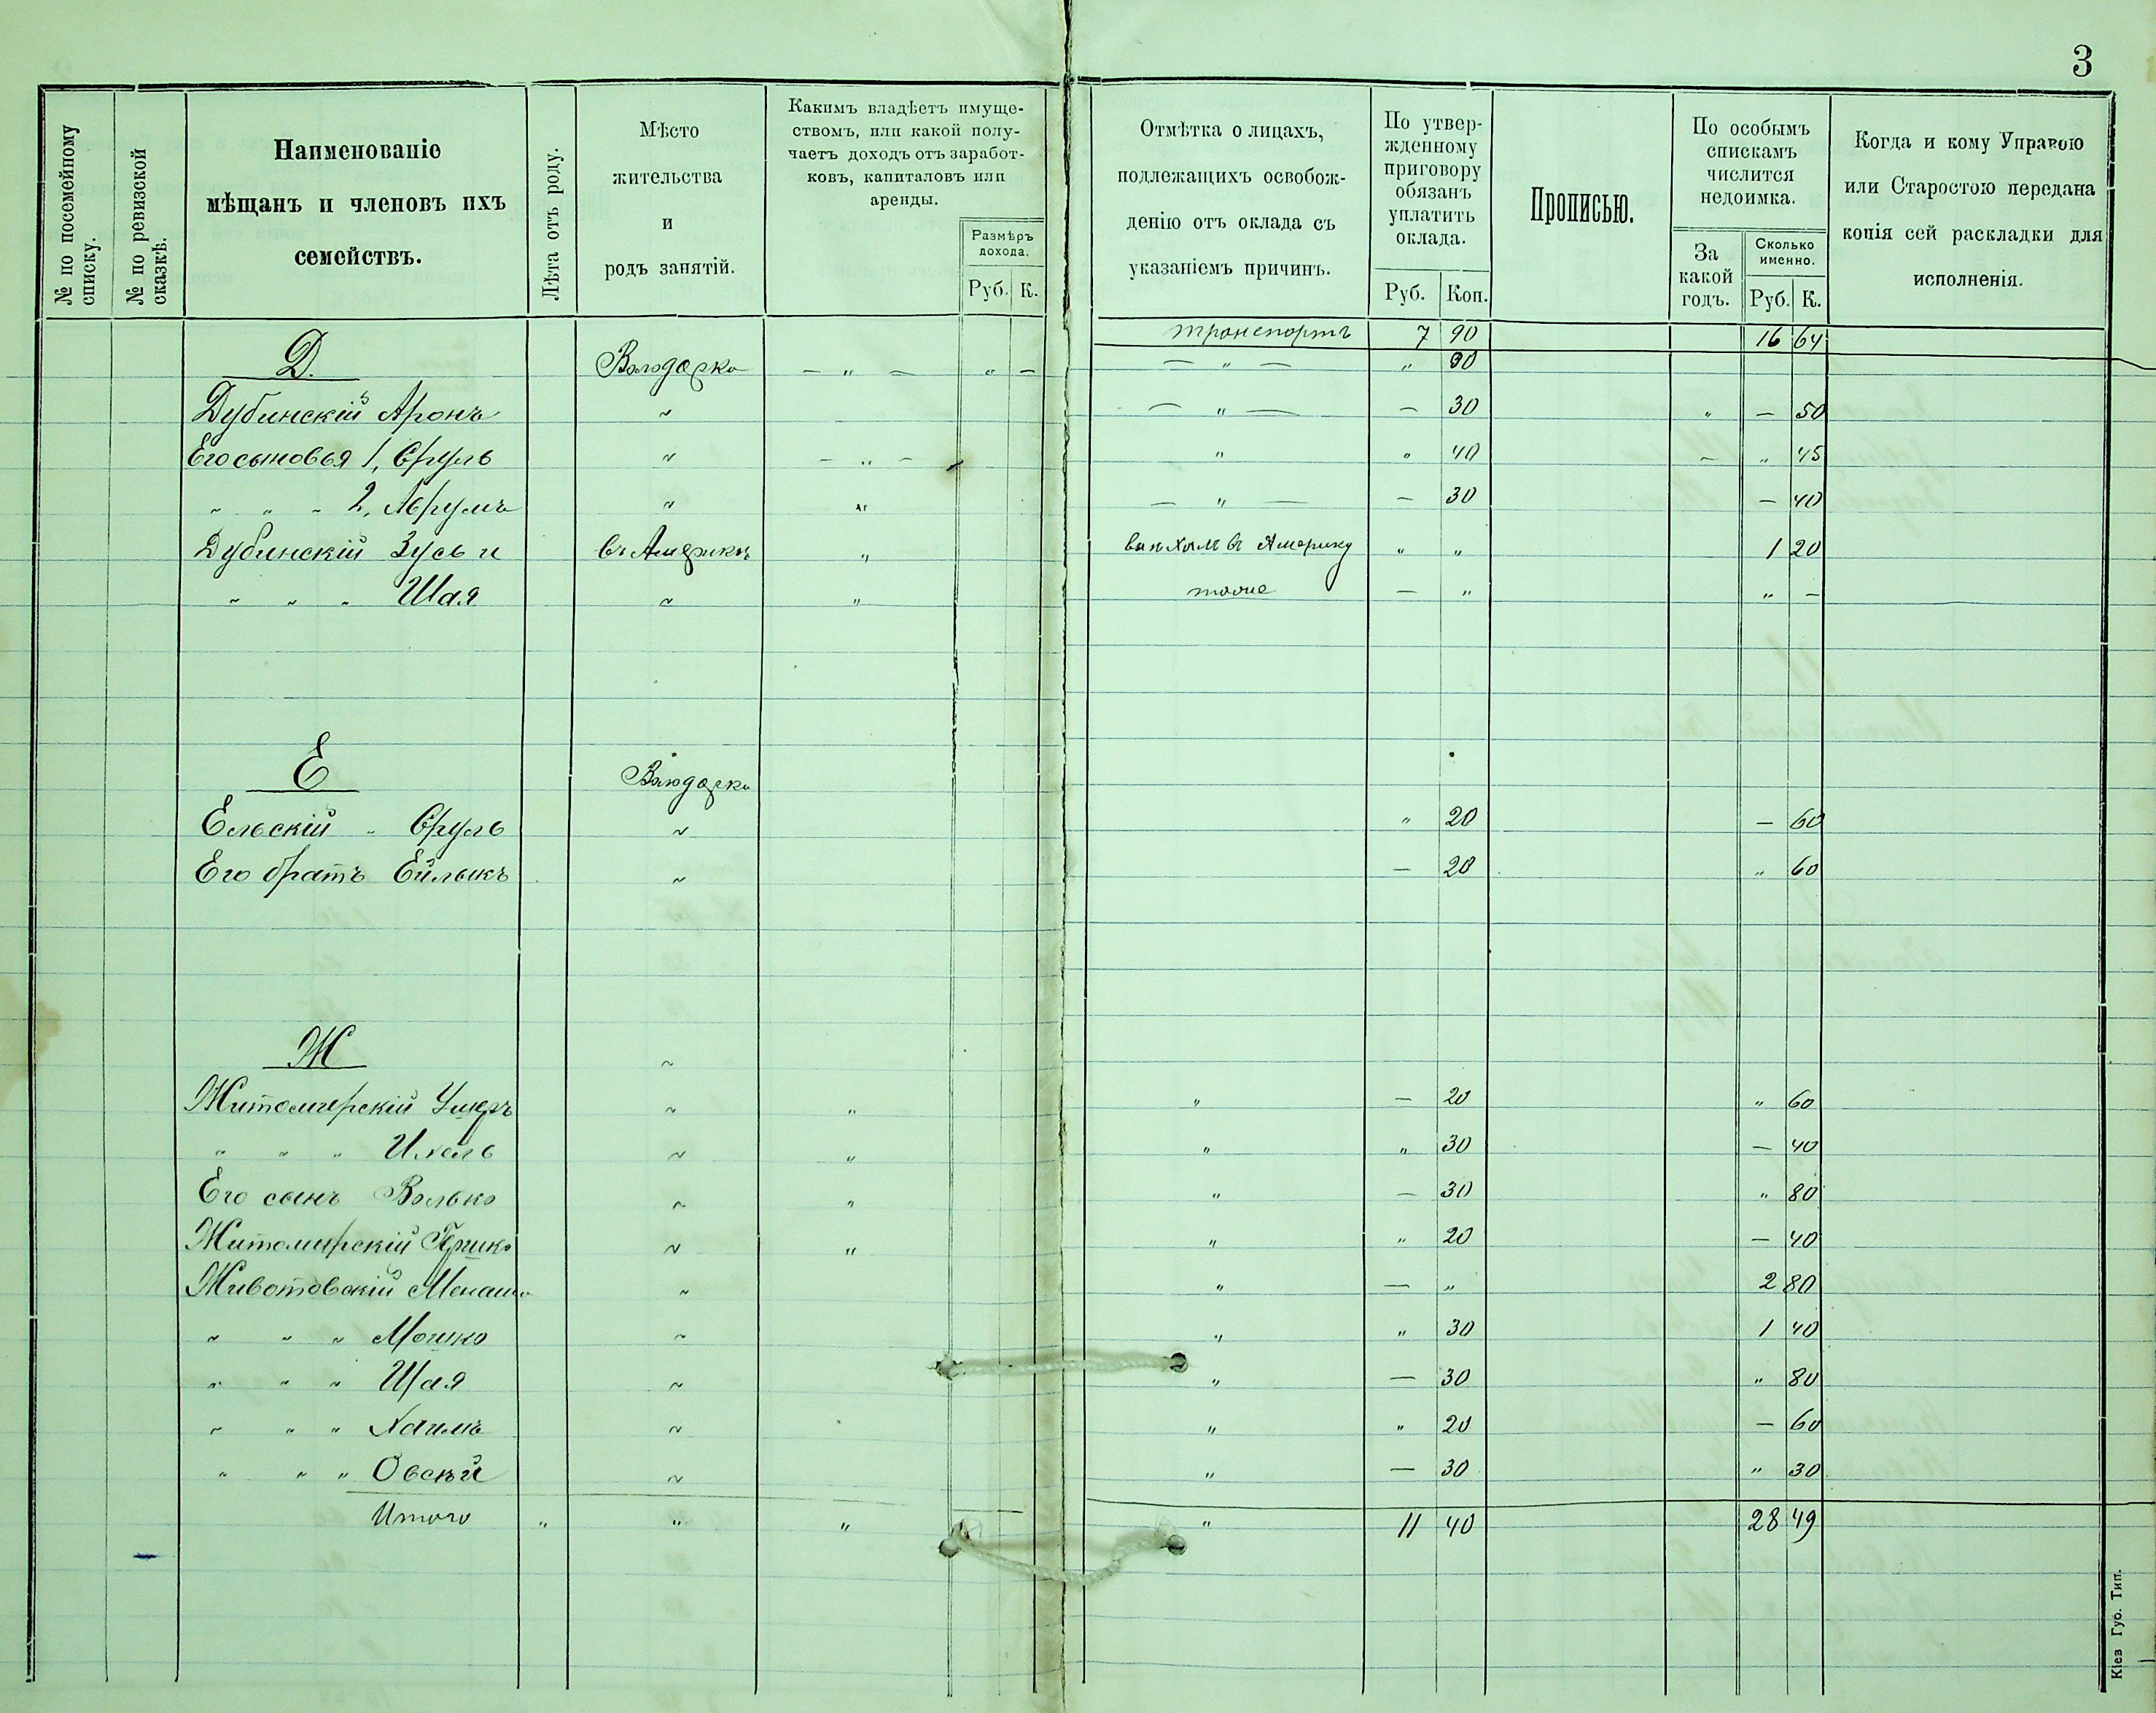 3
№ по посемейному списку.
№ по ревизской сказкѣ.
Наименованіе мѣщанъ и членовъ ихъ семействъ.
Лѣта отъ роду.
Мѣсто жительства и родъ занятій.
Какимъ владѣетъ имуществомъ, или какой получаетъ доходъ отъ заработковъ, капиталовъ или аренды.
Размѣръ дохода.
Руб. К.
Отмѣтка о лицахъ, подлежащихъ освобожденію отъ оклада съ указаніемъ причинъ.
По утвержденному приговору обязанъ уплатить оклада.
Руб. Коп.
Прописью.
По особымъ спискамъ числится недоимка.
За какой годъ.
Сколько именно.
Руб. К.
Когда и кому Управою или Старостою передана копія сей раскладки для исполненія.
транспортъ 7 90 16 64
Д. Володарка — " — " — — " — " 30
Дубинскій Аронъ ~ — " — — 30 " — 50
Его сыновья 1, Сруль ~ — " — " " 40 — " 45
" " " 2, Аврумъ ~ " — " — — 30 — 40
Дубинскій Зусь и въ Америкѣ " въ Америку " " 1 20
" " " Шая ~ " тоже — " " —
Е Володарка
Ельскій " Сруль ~ " 20 — 60
Его братъ Ейлыкъ ~ — 20 " 60
Ж ~
Житомирскій ~ " " — 20 " 60
" " " Ихель ~ " " " 30 — 40
Его сынъ Волько ~ " " — 30 " 80
Житомирскій Гершко ~ " " " 20 — 40
Животовскій Менаше ~ " — " 2 80
" " " Мошко ~ " " 30 1 40
" " " Шая ~ " — 30 " 80
" " " Хаимъ ~ " " 20 — 60
" " " Овсѣй ~ " — 30 " 30
Итого " " " " 11 40 28 49
Кіев Губ. Тип.